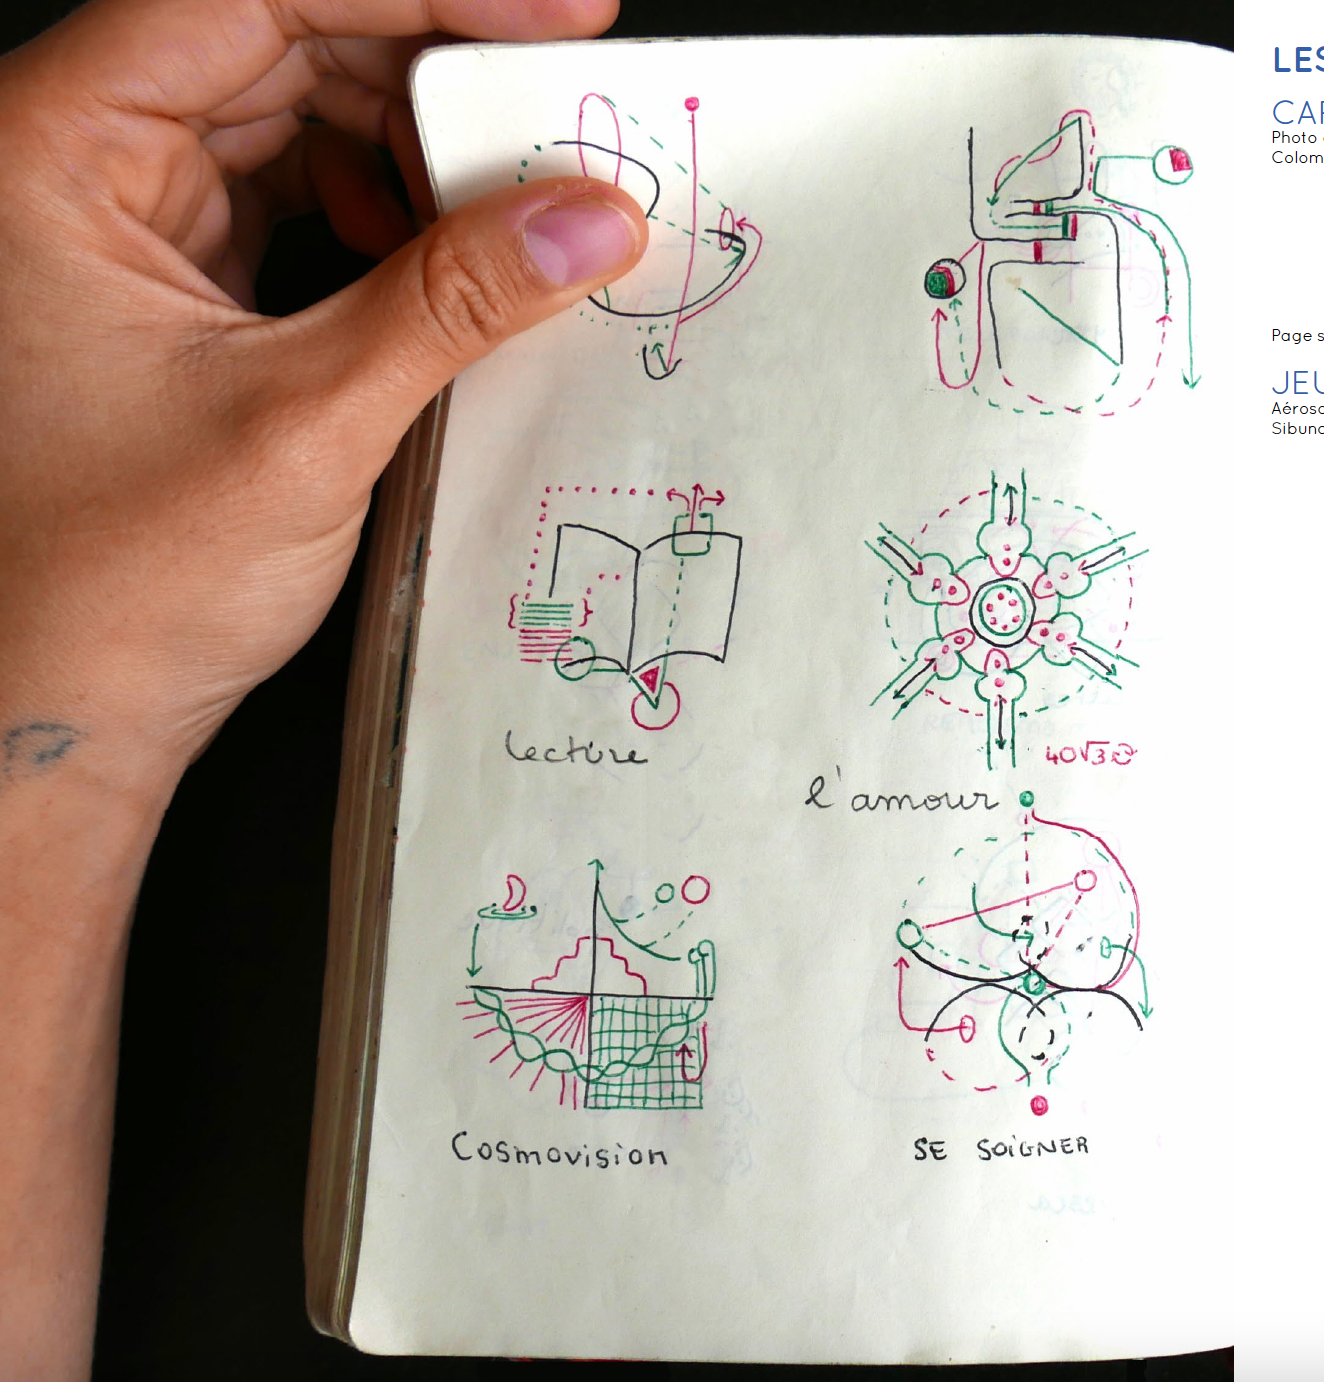 lecture
40√3
l'amour
Cosmovision
SE SOIGNER
LES
CAR
Photo
Colom
Page s
JEU
Aéroso
Sibund